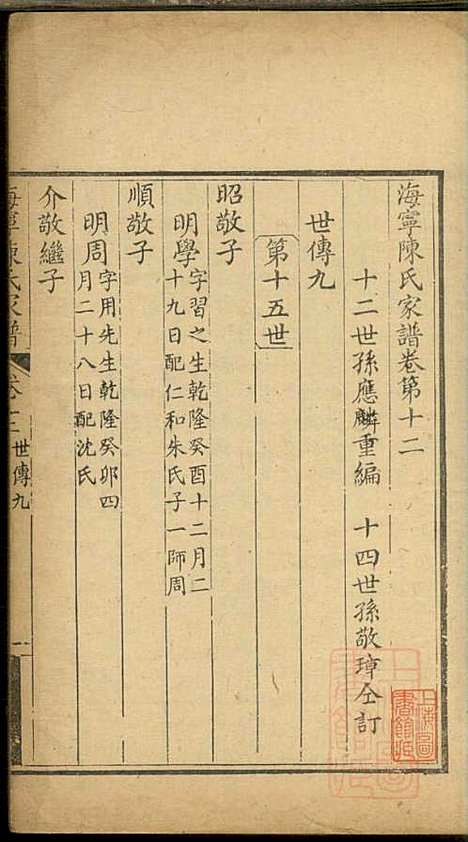 海寧陳氏家譜卷第十二
十二世孫應麟重編 十四世孫敬璋仝訂
世傳九
第十五世
昭敬子
明學字習之生乾隆癸酉十二月二
十九日配仁和朱氏子一師周
順敬子
明周字用先生乾隆癸卯四
月二十八日配沈氏
介敬繼子
海寧陳氏家譜 卷十二 世傳九 一
上海圖
書館藏